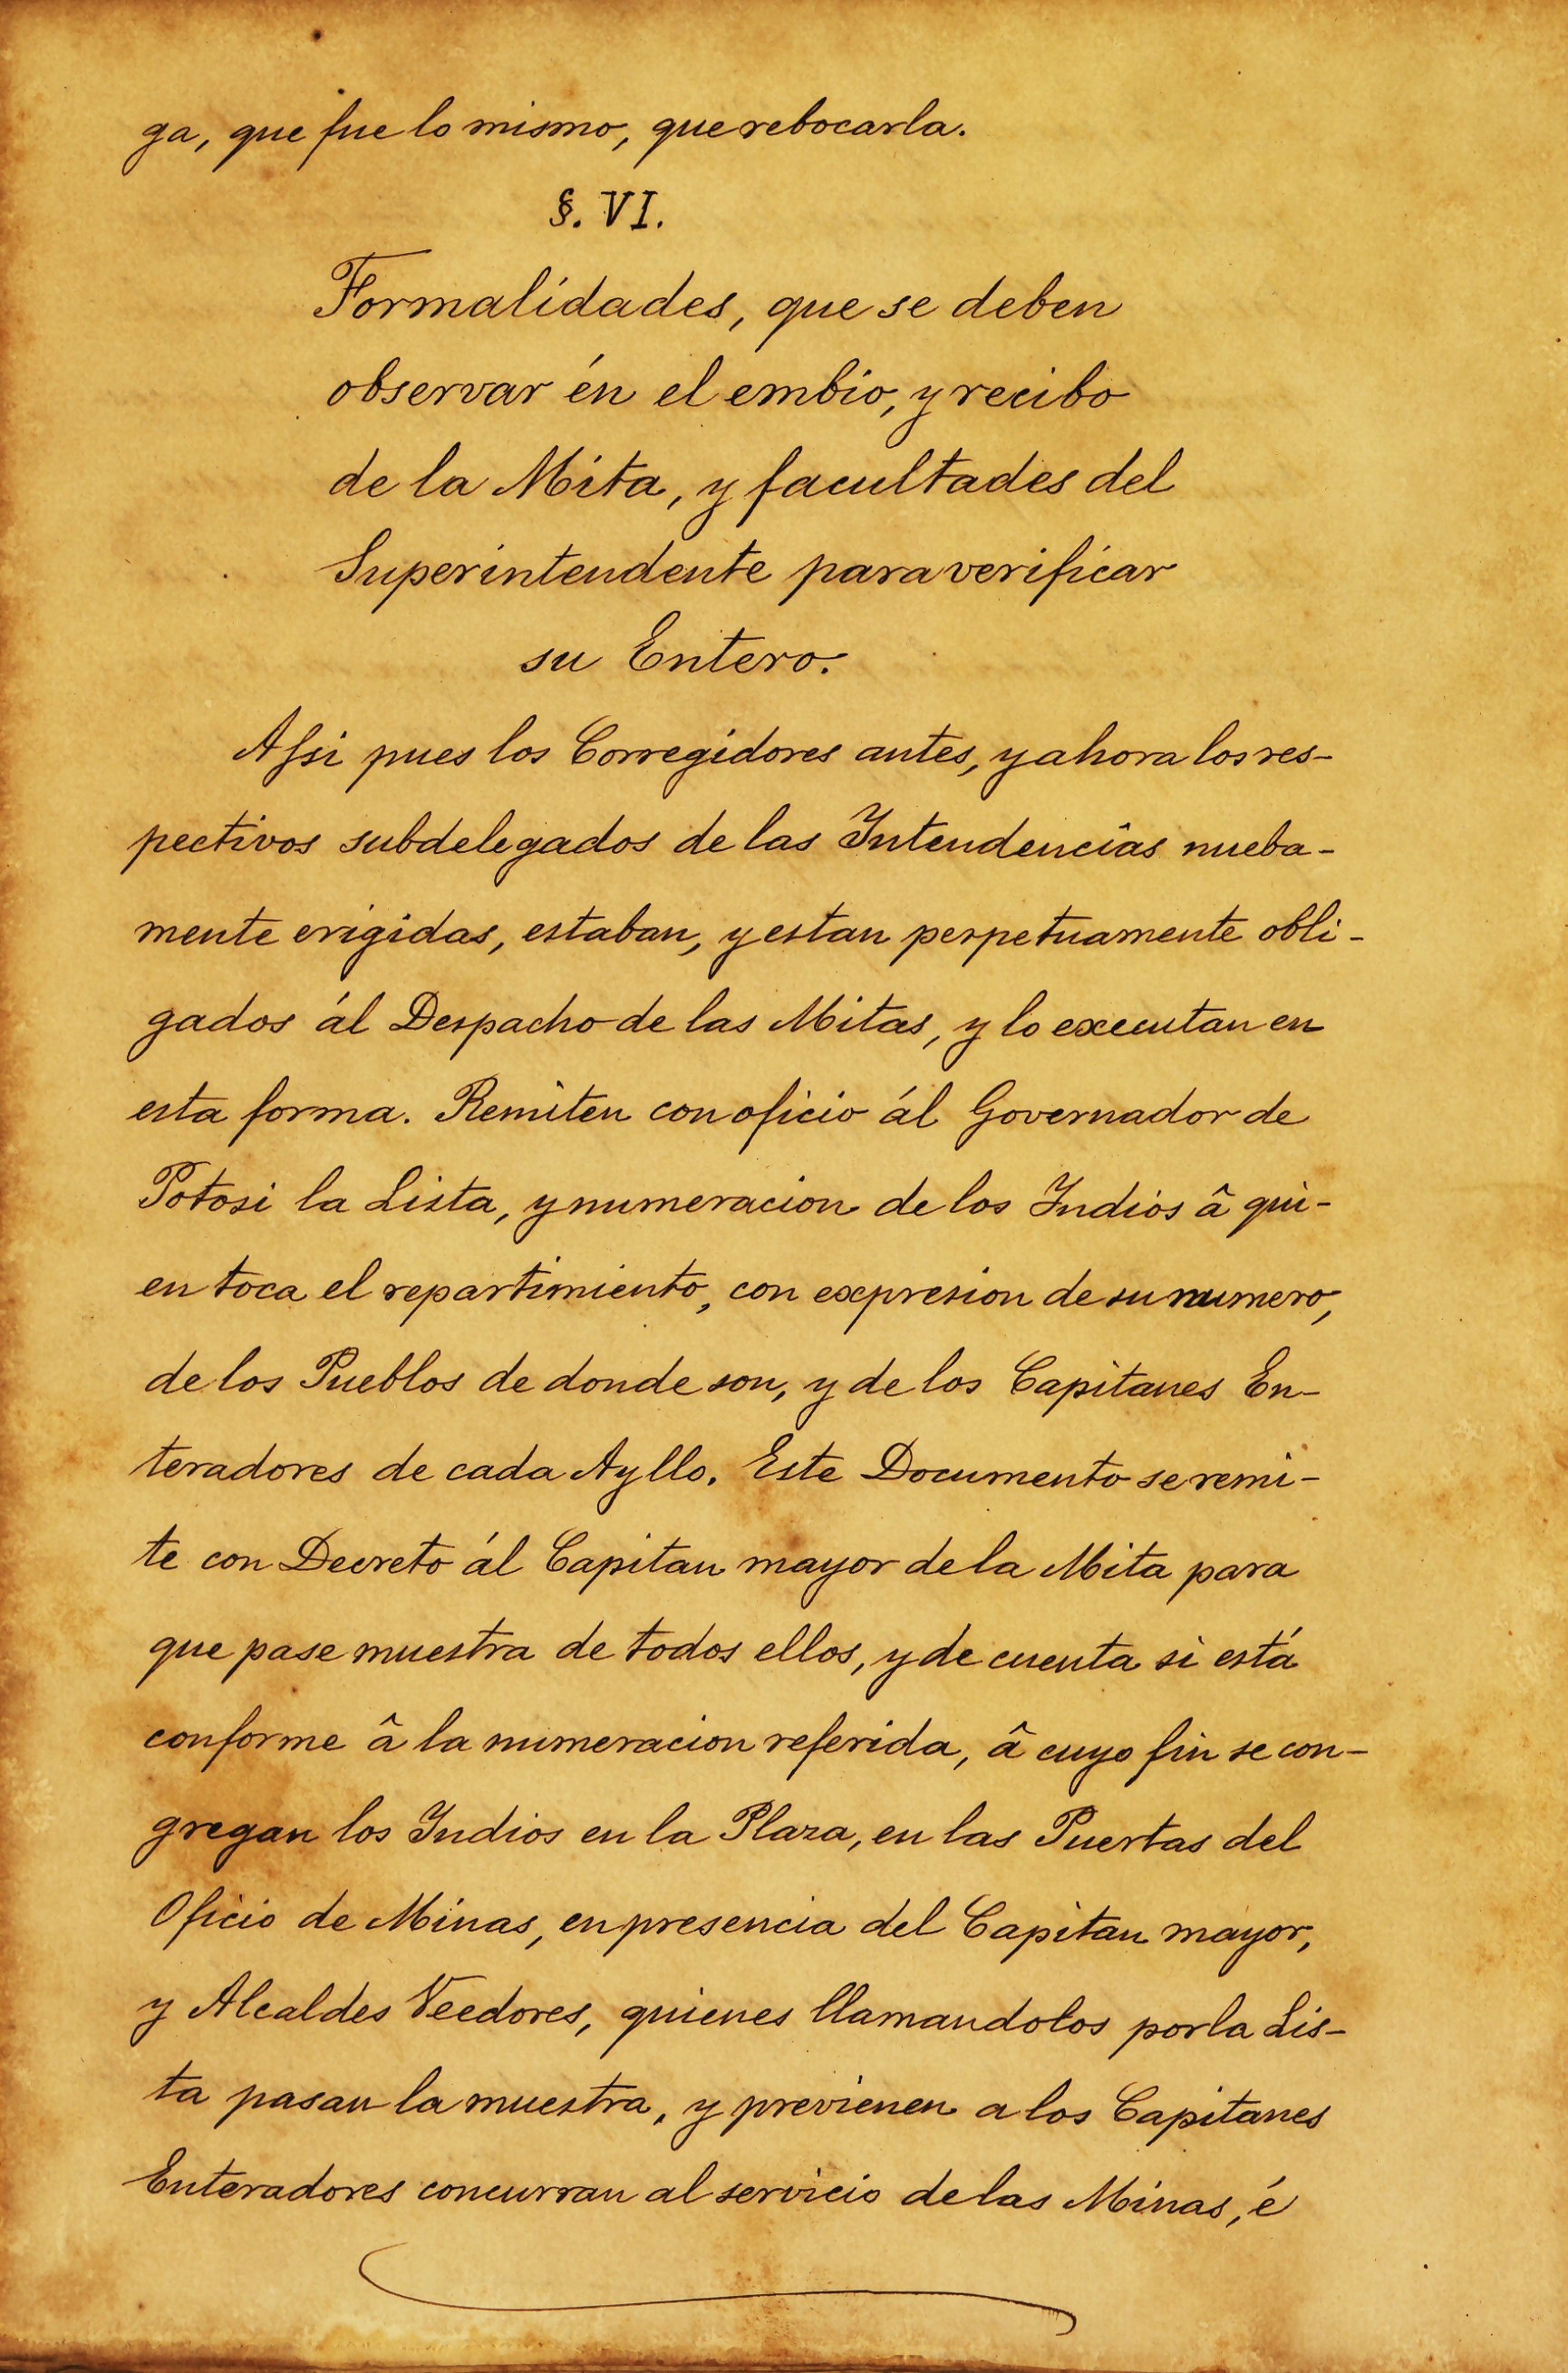 ga, que fue lo mismo, que rebocarla.
§. VI.
Formalidades, que se deben
observar én el embio, y recibo
de la Mita, y facultades del
Superintendente para verificar
su Entero.
Assi pues los Corregidores antes, y ahora los res-
pectivos subdelegados de las Intendencias nueba-
mente erigidas, estaban, y estan perpetuamente obli-
gados ál Despacho de las Mitas, y lo executan en
esta forma. Remiten con oficio ál Governador de
Potosi la Lista, y numeracion de los Indios â qui-
en toca el repartimiento, con expresion de su numero,
de los Pueblos de donde son, y de los Capitanes En-
teradores de cada Ayllo. Este Documento se remi-
te con Decreto ál Capitan mayor de la Mita para
que pase muestra de todos ellos, y de cuenta si está
conforme â la numeracion referida, â cuyo fin se con-
gregan los Indios en la Plaza, en las Puertas del
Oficio de Minas, en presencia del Capitan mayor,
y Alcaldes Veedores, quienes llamandolos por la Lis-
ta pasan la muestra, y previenen a los Capitanes
Enteradores concurran al servicio de las Minas, é